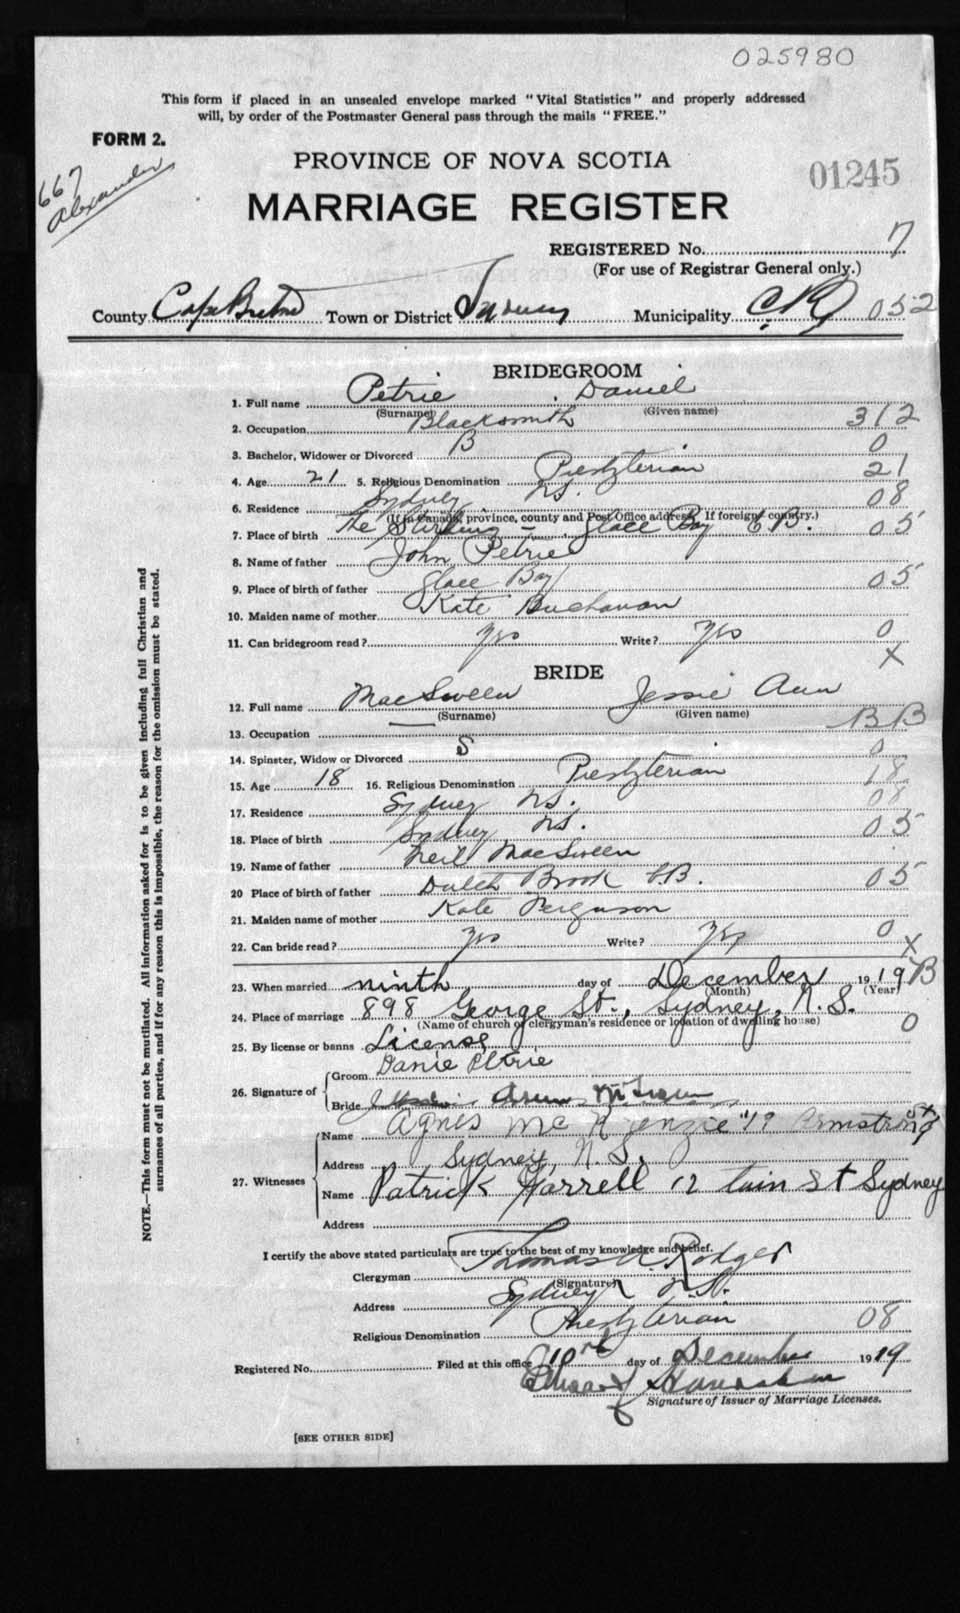 025980
This form if placed in an unsealed envelope marked "Vital Statistics" and properly addressed
will, by order of the Postmaster General pass through the mails "FREE."
FORM 2.
667
Alexander
PROVINCE OF NOVA SCOTIA
01245
MARRIAGE REGISTER
REGISTERED No. 7
(For use of Registrar General only.)
County Cape Breton Town or District Sydney Municipality C.B. 052
BRIDEGROOM
1. Full name Petrie Daniel
(Surname) (Given name)
2. Occupation Blacksmith 312
3. Bachelor, Widower or Divorced B 0
4. Age 21 5. Religious Denomination Presbyterian 21
6. Residence Sydney N.S. 08
(If in Canada, province, county and Post Office address. If foreign, country.)
7. Place of birth The Sterling - Glace Bay C.B. 05
8. Name of father John Petrie
9. Place of birth of father Glace Bay 05
10. Maiden name of mother Kate Buchanan
11. Can bridegroom read? Yes Write? Yes 0
X
BRIDE
12. Full name MacSween Jessie Ann
(Surname) (Given name)
13. Occupation — BB
14. Spinster, Widow or Divorced S 0
15. Age 18 16. Religious Denomination Presbyterian 18
17. Residence Sydney N.S. 08
18. Place of birth Sydney N.S. 05
19. Name of father Neil MacSween
20 Place of birth of father Dutch Brook C.B. 05
21. Maiden name of mother Kate Ferguson
22. Can bride read? Yes Write? Yes 0
X
23. When married ninth day of December 1919 B
(Month) (Year)
24. Place of marriage 898 George St., Sydney, N.S.
(Name of church or clergyman's residence or location of dwelling house) 0
25. By license or banns License
26. Signature of
Groom Danie Petrie
Bride Ann
27. Witnesses
Name Agnes McKenzie 19 Armstrong St
Address Sydney, N.S.
Name Patrick Farrell 12 tain St Sydney
Address
I certify the above stated particulars are true to the best of my knowledge and belief.
Clergyman Thomas A. Rodger
(Signature)
Address Sydney N.S.
Religious Denomination Presbyterian 08
Registered No. Filed at this office 10th day of December 1919
Signature of Issuer of Marriage Licenses.
[SEE OTHER SIDE]
NOTE.—This form must not be mutilated. All information asked for is to be given including full Christian and
surnames of all parties, and if for any reason this is impossible, the reason for the omission must be stated.